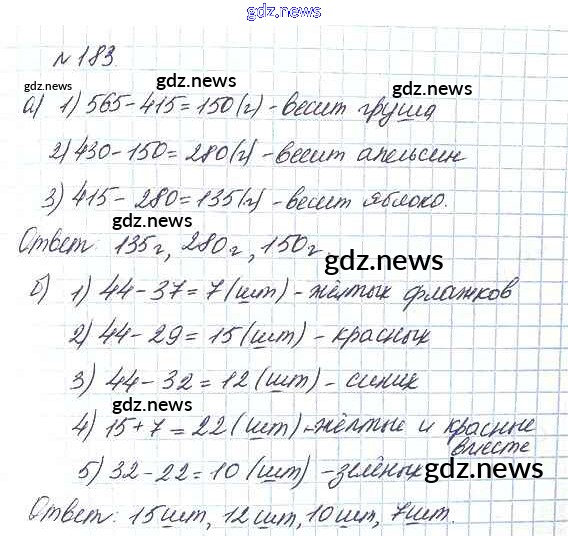 gdz.news
№ 183
gdz.news gdz.news gdz.news
а) 1) 565 - 415 = 150 (г) - весит груша
2) 430 - 150 = 280 (г) - весит апельсин
3) 415 - 280 = 135 (г) - весит яблоко.
gdz.news
Ответ: 135 г, 280 г, 150 г
gdz.news
б) 1) 44 - 37 = 7 (шт) - жёлтых флажков
2) 44 - 29 = 15 (шт) - красных
3) 44 - 32 = 12 (шт) - синих
gdz.news gdz.news
4) 15 + 7 = 22 (шт) - жёлтые и красные
вместе
5) 32 - 22 = 10 (шт) - зелёных
gdz.news
Ответ: 15 шт, 12 шт, 10 шт, 7 шт.
gdz.news